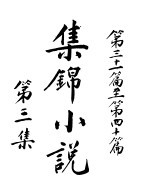 第三十一篇至第四十篇
集錦小說
第三集